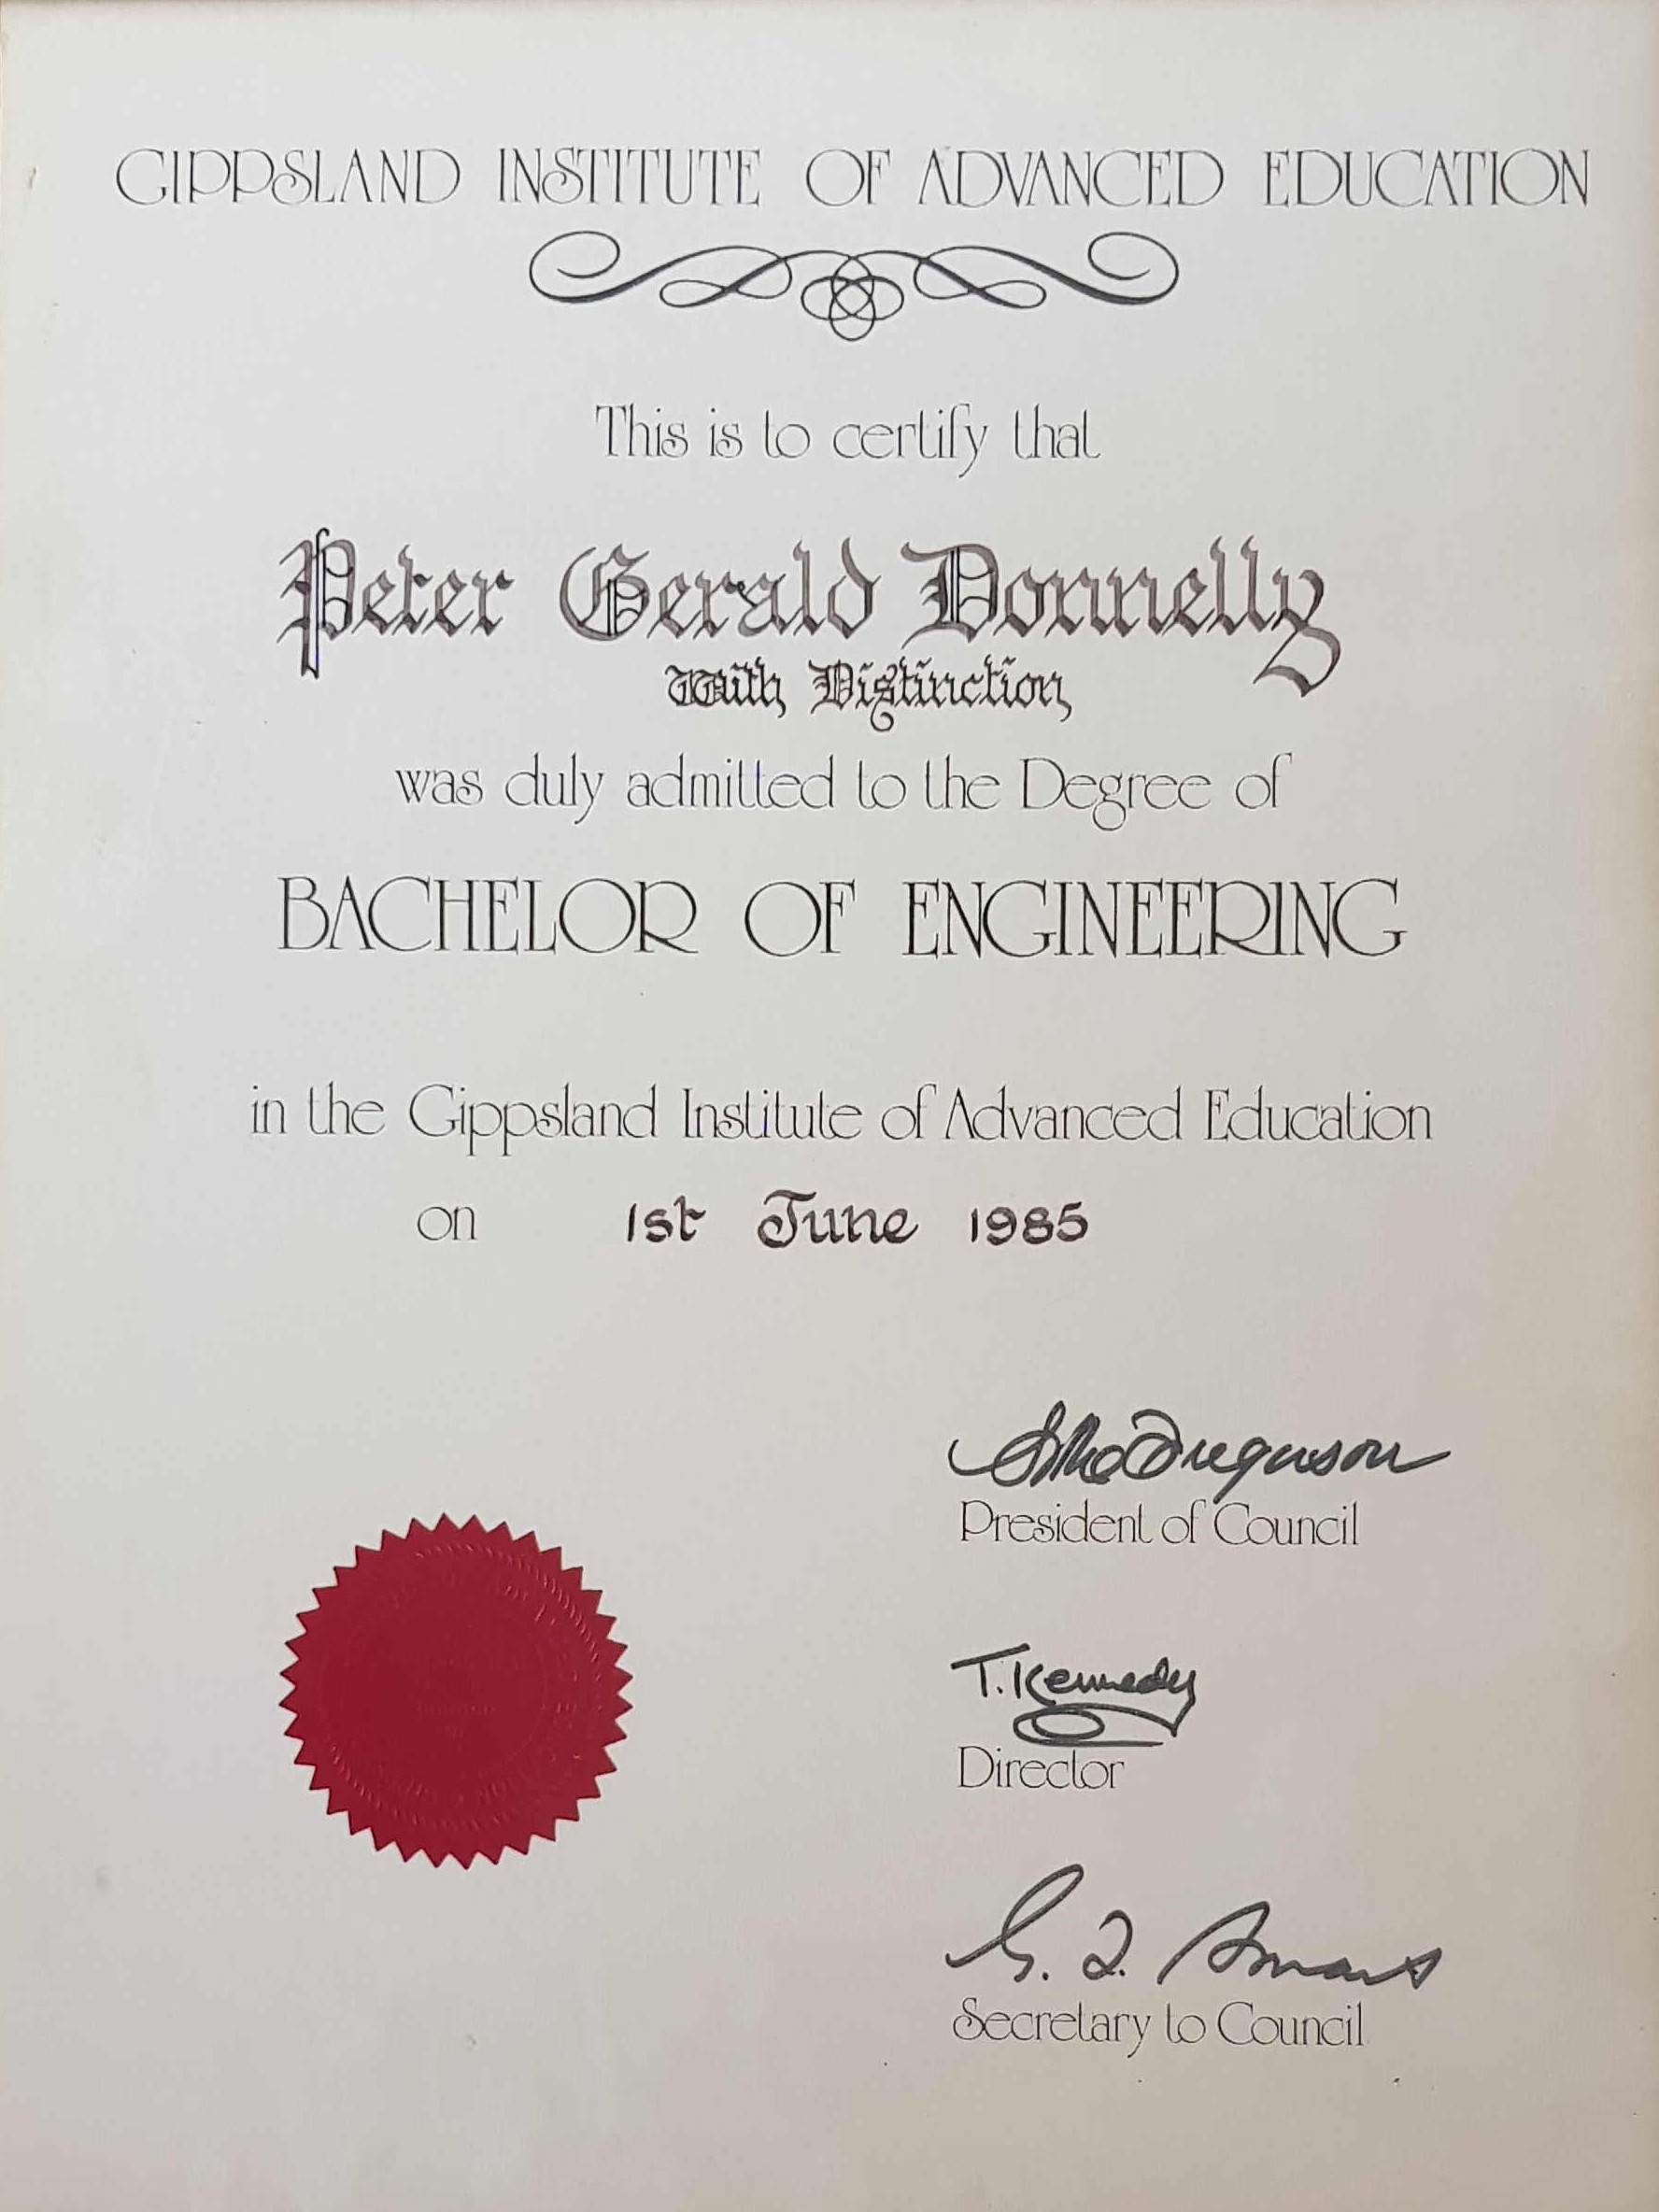 GIPPSLAND INSTITUTE OF ADVANCED EDUCATION
This is to certify that
Peter Gerald Donnelly
With Distinction
was duly admitted to the Degree of
BACHELOR OF ENGINEERING
in the Gippsland Institute of Advanced Education
on 1st June 1985
President of Council
T. Kennedy
Director
Secretary to Council